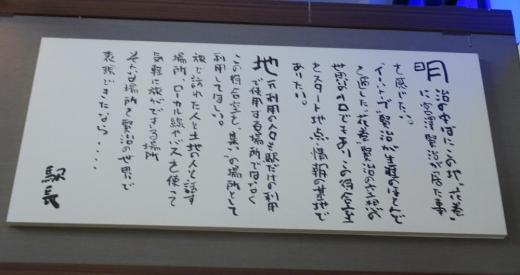 明治の世にこの地、花巻
に宮澤賢治が居た事
を感じたい。
そして、賢治が生涯のほとんど
を過した花巻、賢治の空想の
世界の入口でもあるこの待合室を
スタート地点、情報の基地で
ありたい。
地元利用の人々も駅だけの利用
で使用する場所ではなく
この待合室も、集いの場所として
利用してほしい。
旅で訪れた人と土地の人と話す
場所、ローカル線やバスも使って
気軽に旅ができる場所
そんな場所を賢治の世界で
表現できたなら・・・・
駅長